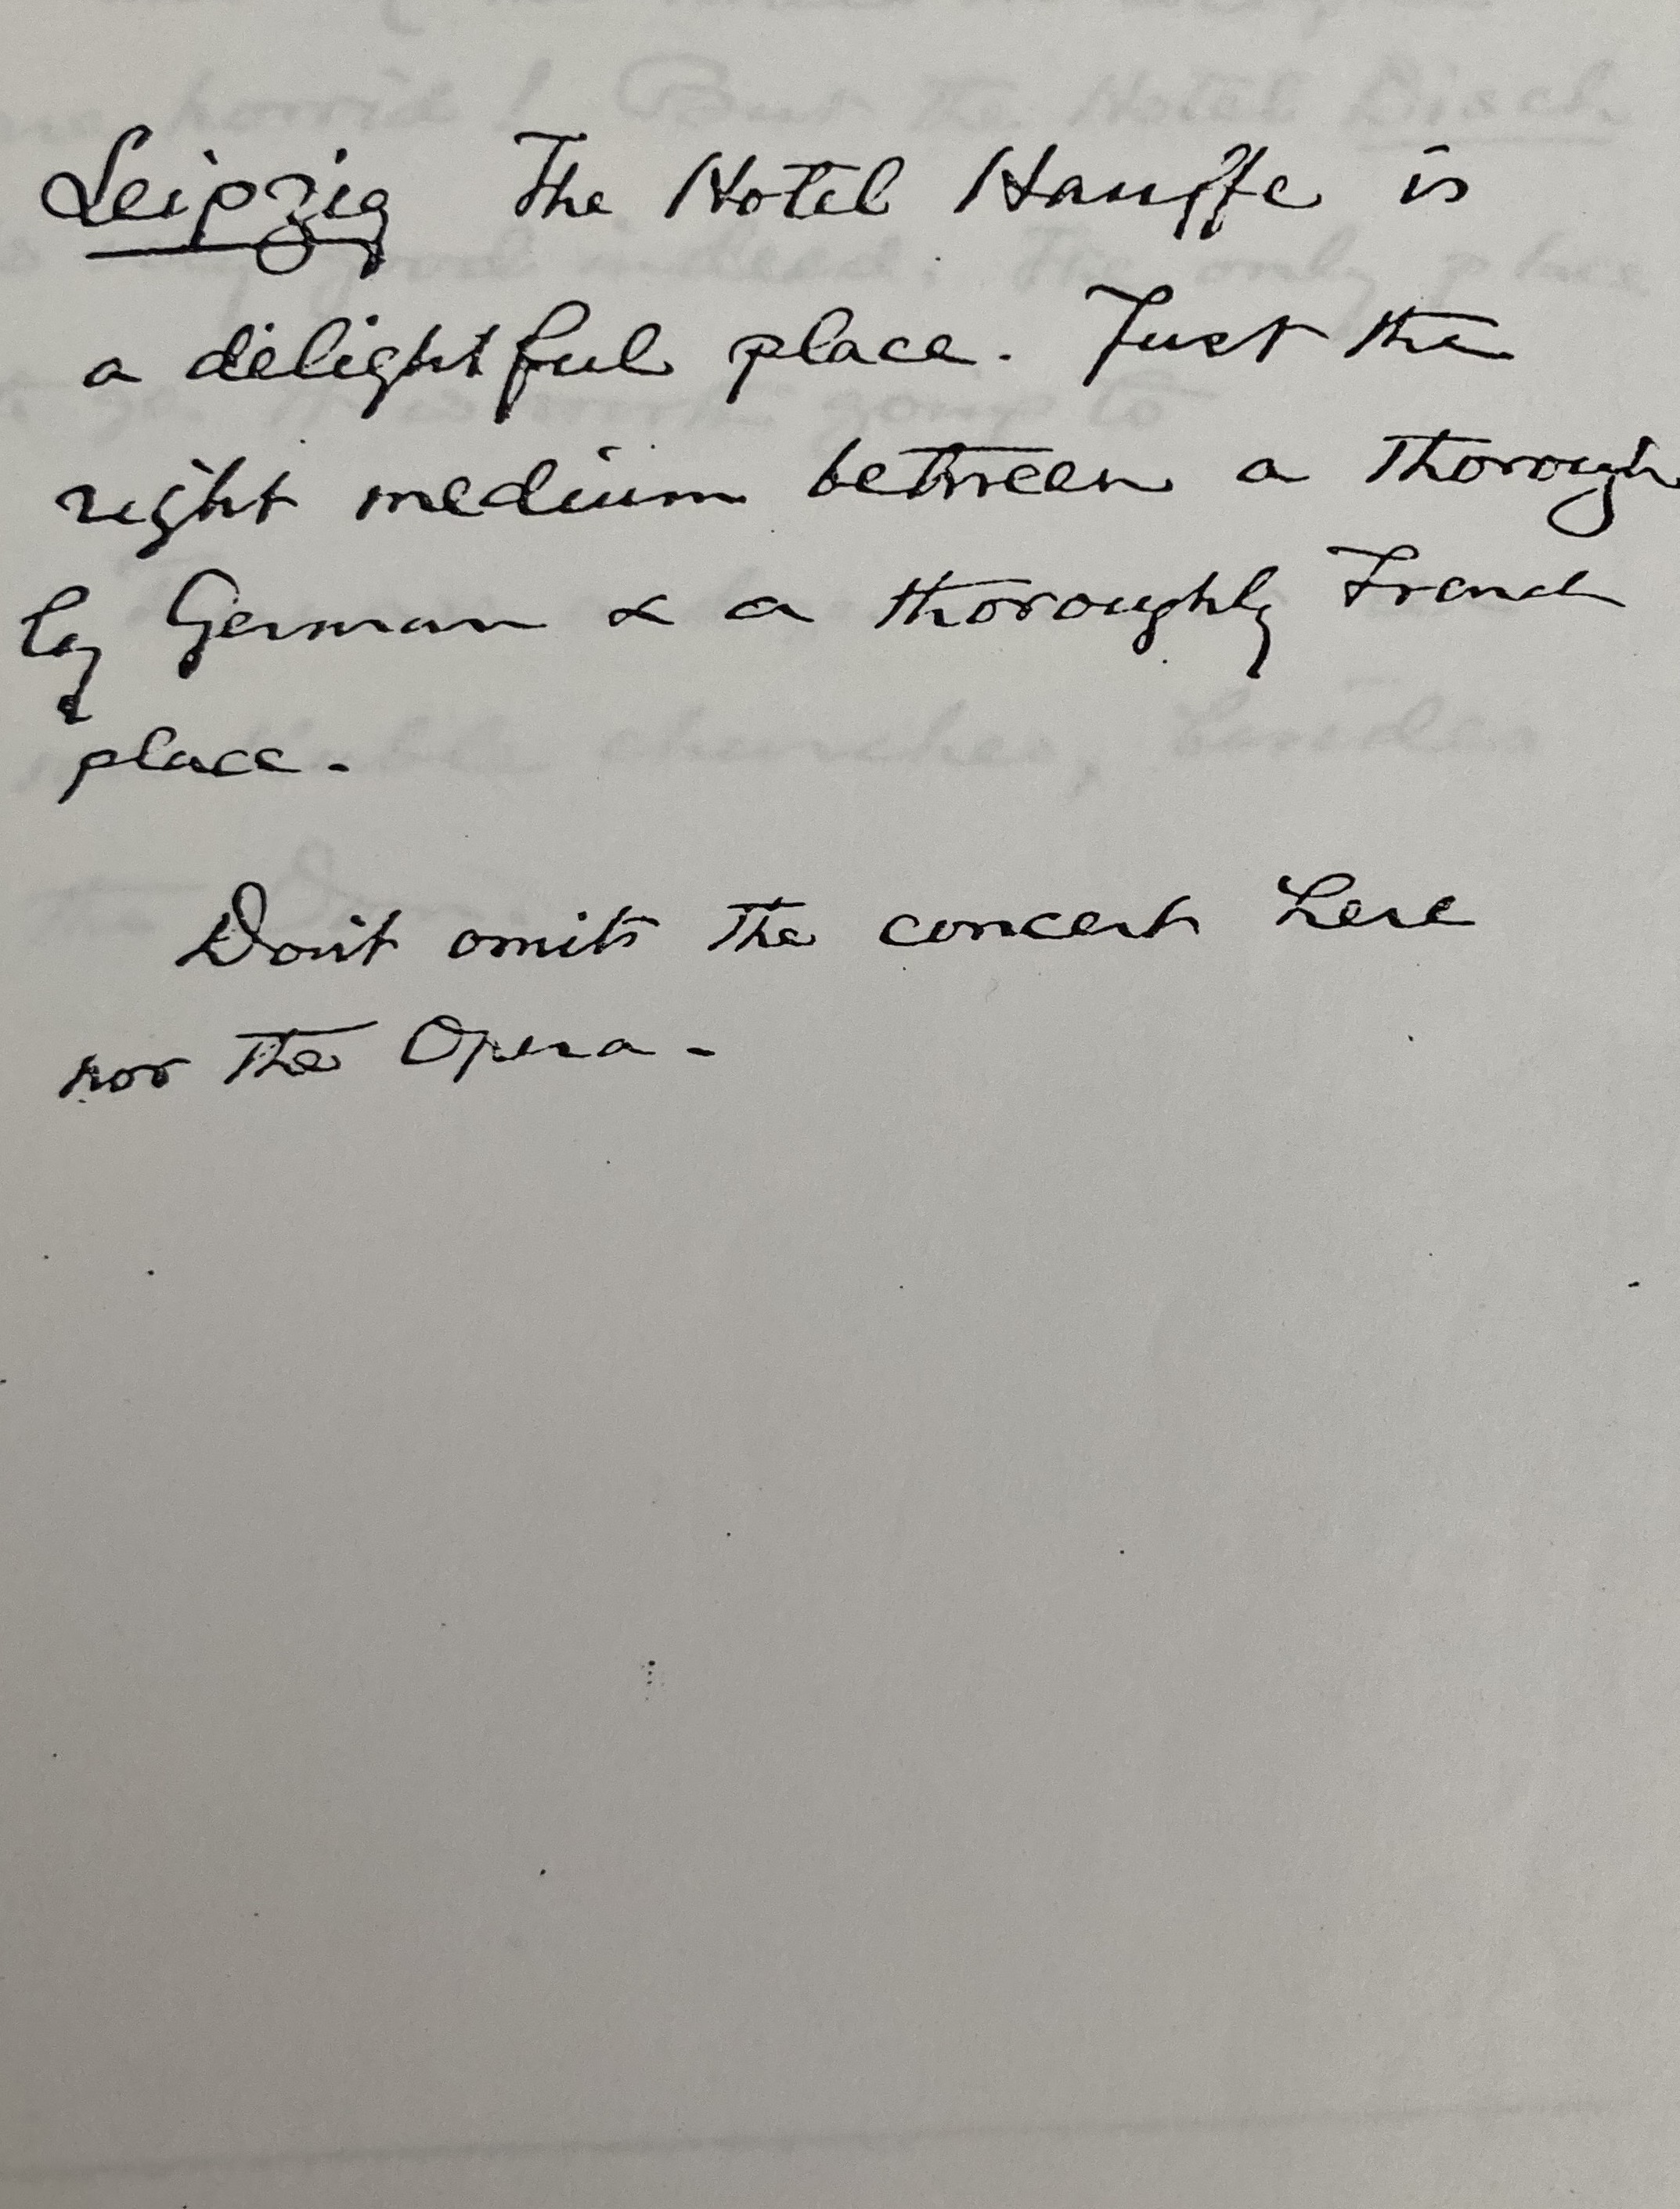 Leipzig The Hotel Hauffe is
a delightful place. Just the
right medium between a thorough
ly German & a thoroughly French
place.
Don't omit the concert here
nor the Opera.